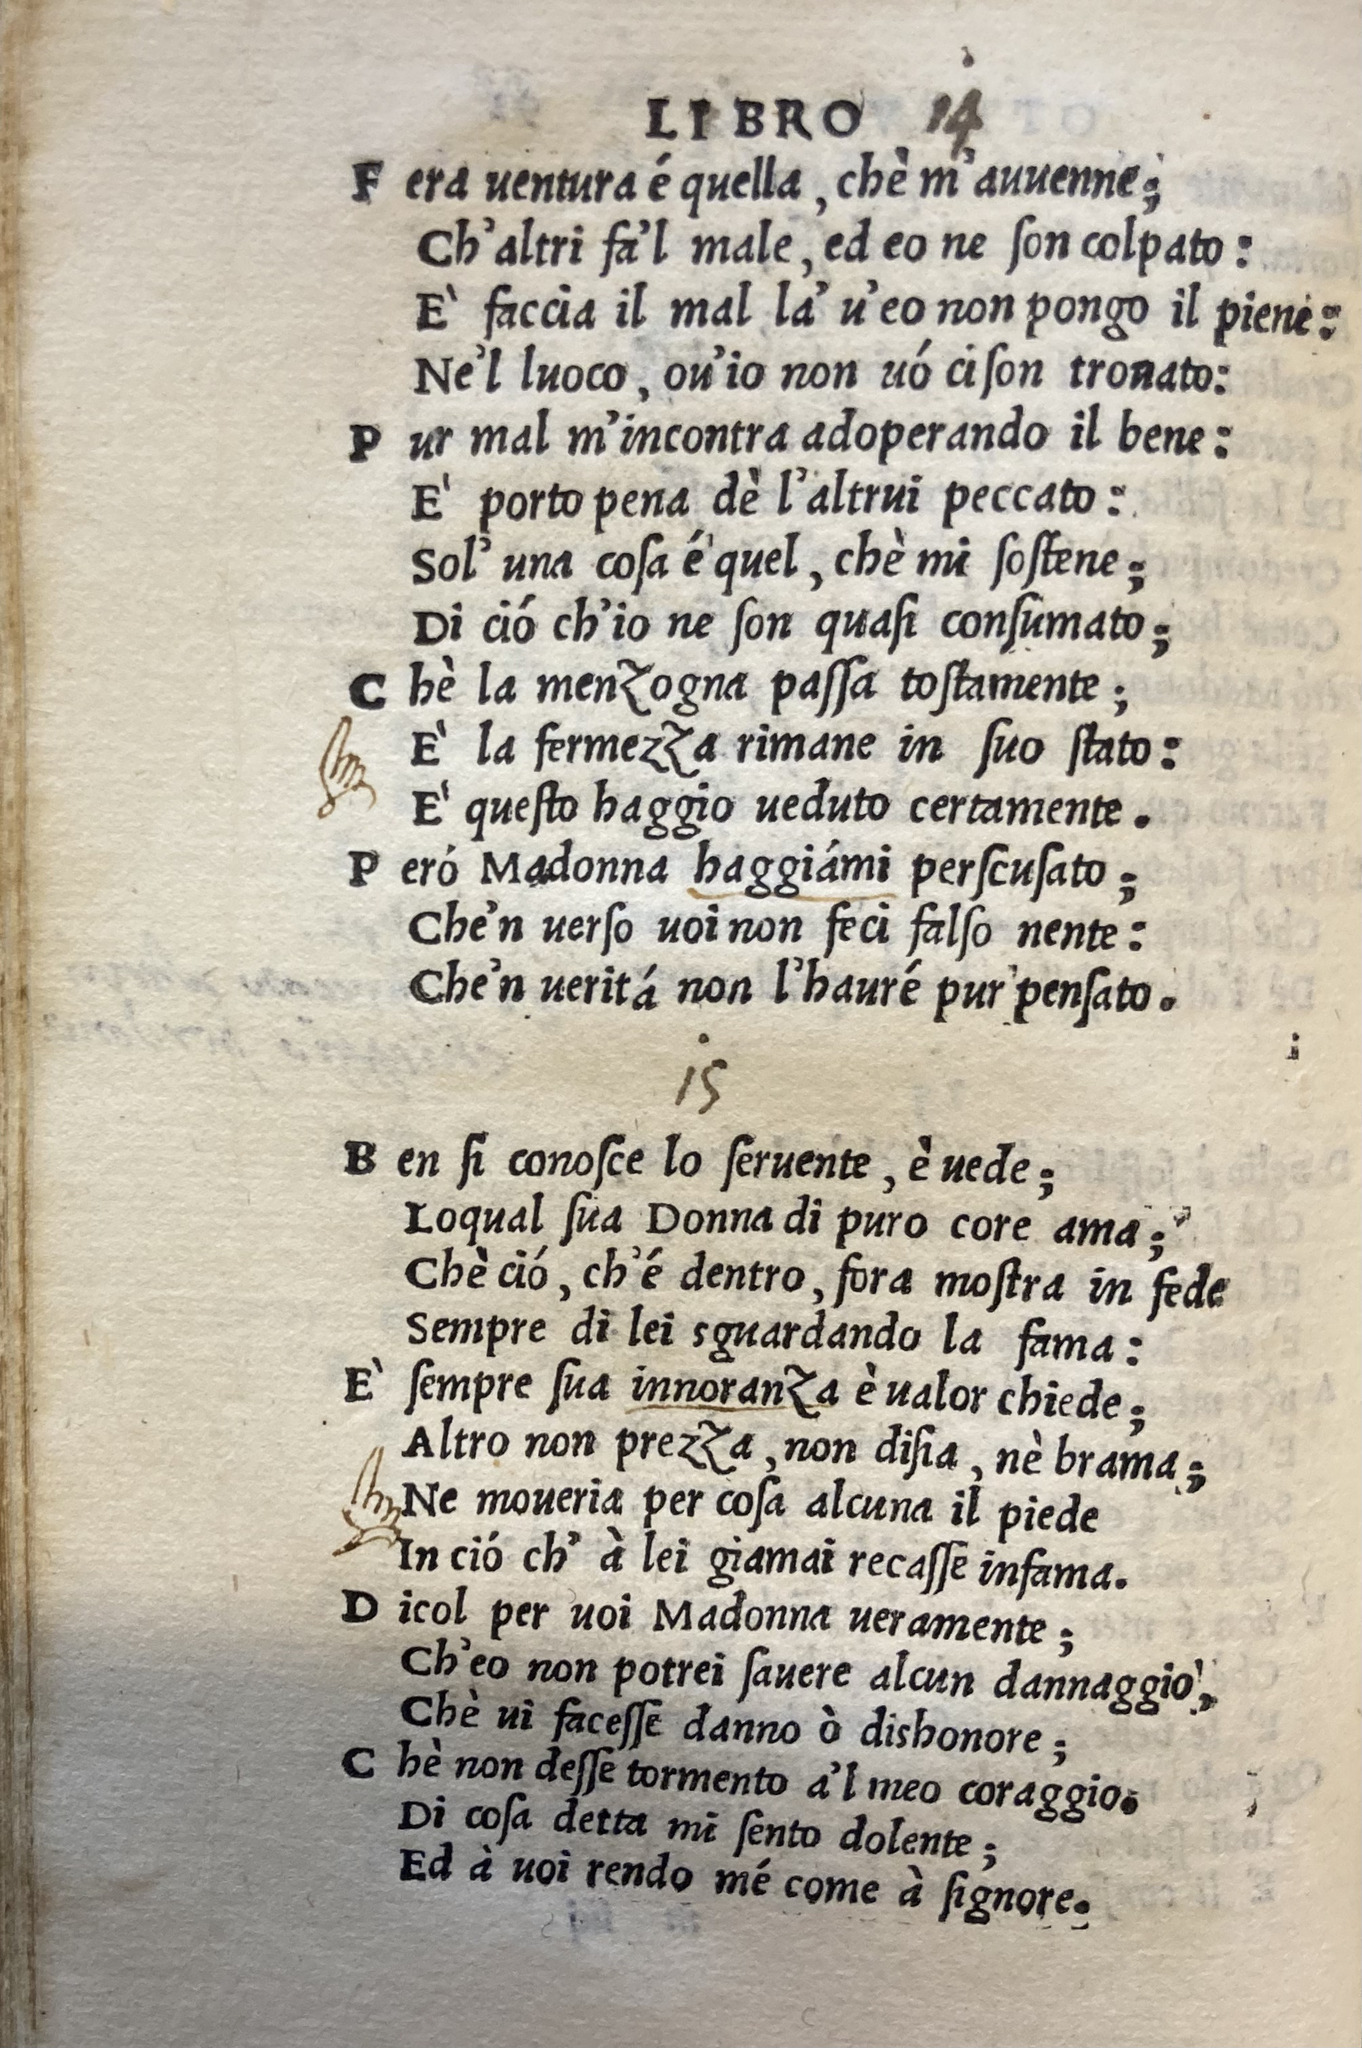 LIBRO 14
Fera uentura é quella, chè m'auuenne;
Ch'altri fa'l male, ed eo ne ſon colpato:
E' faccia il mal la' u'eo non pongo il piene:
Ne'l luoco, ou'io non uó ci ſon tronato:
Pur mal m'incontra adoperando il bene:
E' porto pena dè l'altrui peccato:
Sol' una coſa é quel, chè mi ſoſtene;
Di ció ch'io ne ſon quaſi conſumato;
Chè la menzogna paſſa toſtamente;
E' la fermezza rimane in ſuo ſtato:
E' queſto haggio ueduto certamente.
Peró Madonna haggiámi perſcuſato;
Che'n uerſo uoi non feci falſo nente:
Che'n ueritá non l'hauré pur penſato.
15
Ben ſi conoſce lo ſeruente, è uede;
Loqual ſua Donna di puro core ama;
Chè ció, ch'é dentro, fora moſtra in fede
Sempre di lei sguardando la fama:
E' ſempre ſua innoranza è ualor chiede;
Altro non prezza, non diſia, nè brama;
Ne moueria per coſa alcuna il piede
In ció ch' à lei giamai recaſſe infama.
Dicol per uoi Madonna ueramente;
Ch'eo non potrei ſauere alcun dannaggio,
Chè ui faceſſe danno ò dishonore;
Chè non deſſe tormento a'l meo coraggio.
Di coſa detta mi ſento dolente;
Ed à uoi rendo mé come à ſignore.